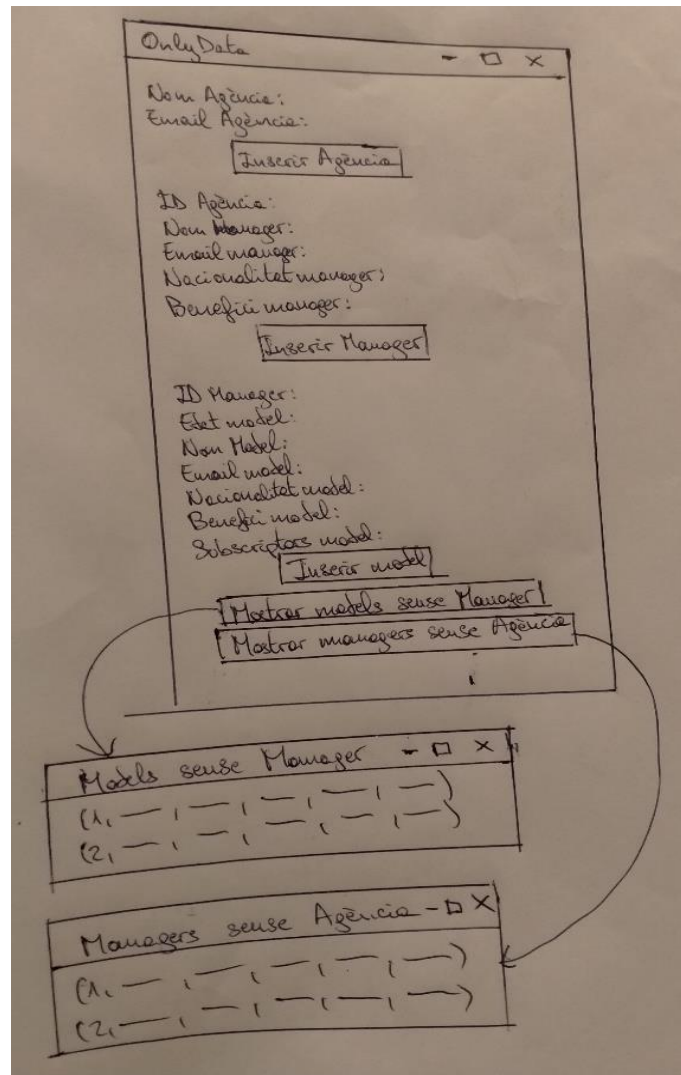 OnlyData - □ X
Nom Agència:
Email Agència:
Inserir Agència
ID Agència:
Nom Manager:
Email manager:
Nacionalitat manager:
Benefici manager:
Inserir Manager
ID Manager:
Edat model:
Nom Model:
Email model:
Nacionalitat model:
Benefici model:
Subscriptors model:
Inserir model
Mostrar models sense Manager
Mostrar managers sense Agència
Models sense Manager - □ X
(1, — , — , — , — , —)
(2, — , — , — , — , —)
Managers sense Agència - □ X
(1, — , — , — , — , —)
(2, — , — , — , — , —)